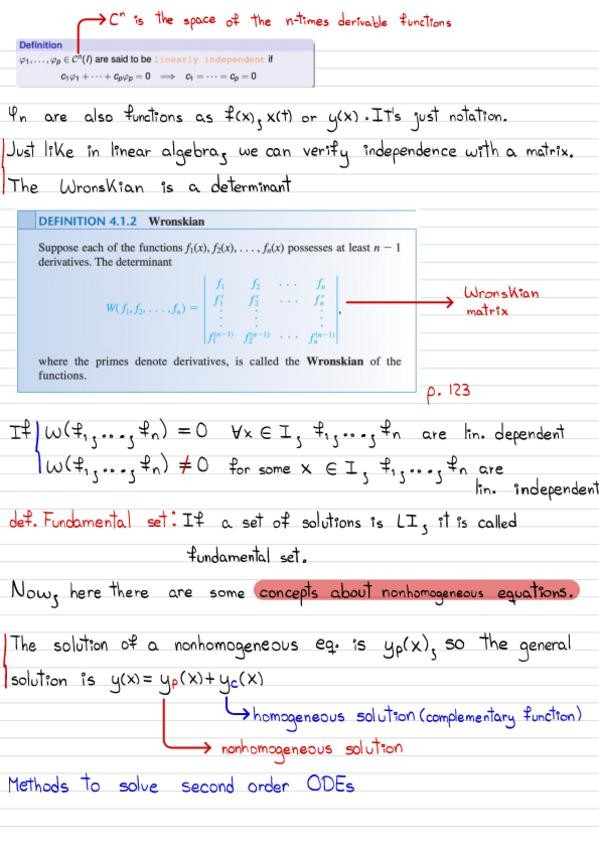 Cⁿ is the space of the n-times derivable functions
Definition
φ₁,...,φₚ ∈ Cⁿ(I) are said to be linearly independent if
c₁φ₁ + ··· + cₚφₚ = 0 ⟹ c₁ = ··· = cₚ = 0
φn are also functions as f(x), x(t) or y(x). It's just notation.
Just like in linear algebra, we can verify independence with a matrix.
The Wronskian is a determinant
DEFINITION 4.1.2 Wronskian
Suppose each of the functions f₁(x), f₂(x), . . . , fₙ(x) possesses at least n − 1
derivatives. The determinant
f₁ f₂ ··· fₙ
W(f₁, f₂, . . . , fₙ) = f₁′ f₂′ ··· fₙ′ ,
⋮ ⋮ ⋮
f₁⁽ⁿ⁻¹⁾ f₂⁽ⁿ⁻¹⁾ ··· fₙ⁽ⁿ⁻¹⁾
Wronskian
matrix
where the primes denote derivatives, is called the Wronskian of the
functions.
p. 123
If W(f₁,...,fn) = 0 ∀x ∈ I, f₁,...,fn are lin. dependent
W(f₁,...,fn) ≠ 0 for some x ∈ I, f₁,...,fn are
lin. independent
def. Fundamental set: If a set of solutions is LI, it is called
fundamental set.
Now, here there are some concepts about nonhomogeneous equations.
The solution of a nonhomogeneous eq. is yp(x), so the general
solution is y(x) = yp(x) + yc(x)
homogeneous solution (complementary function)
nonhomogeneous solution
Methods to solve second order ODEs